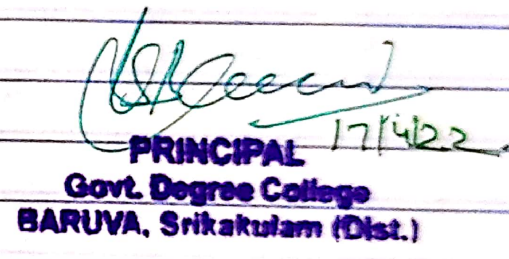 17/4/22
PRINCIPAL
Govt. Degree College
BARUVA, Srikakulam (Dist.)